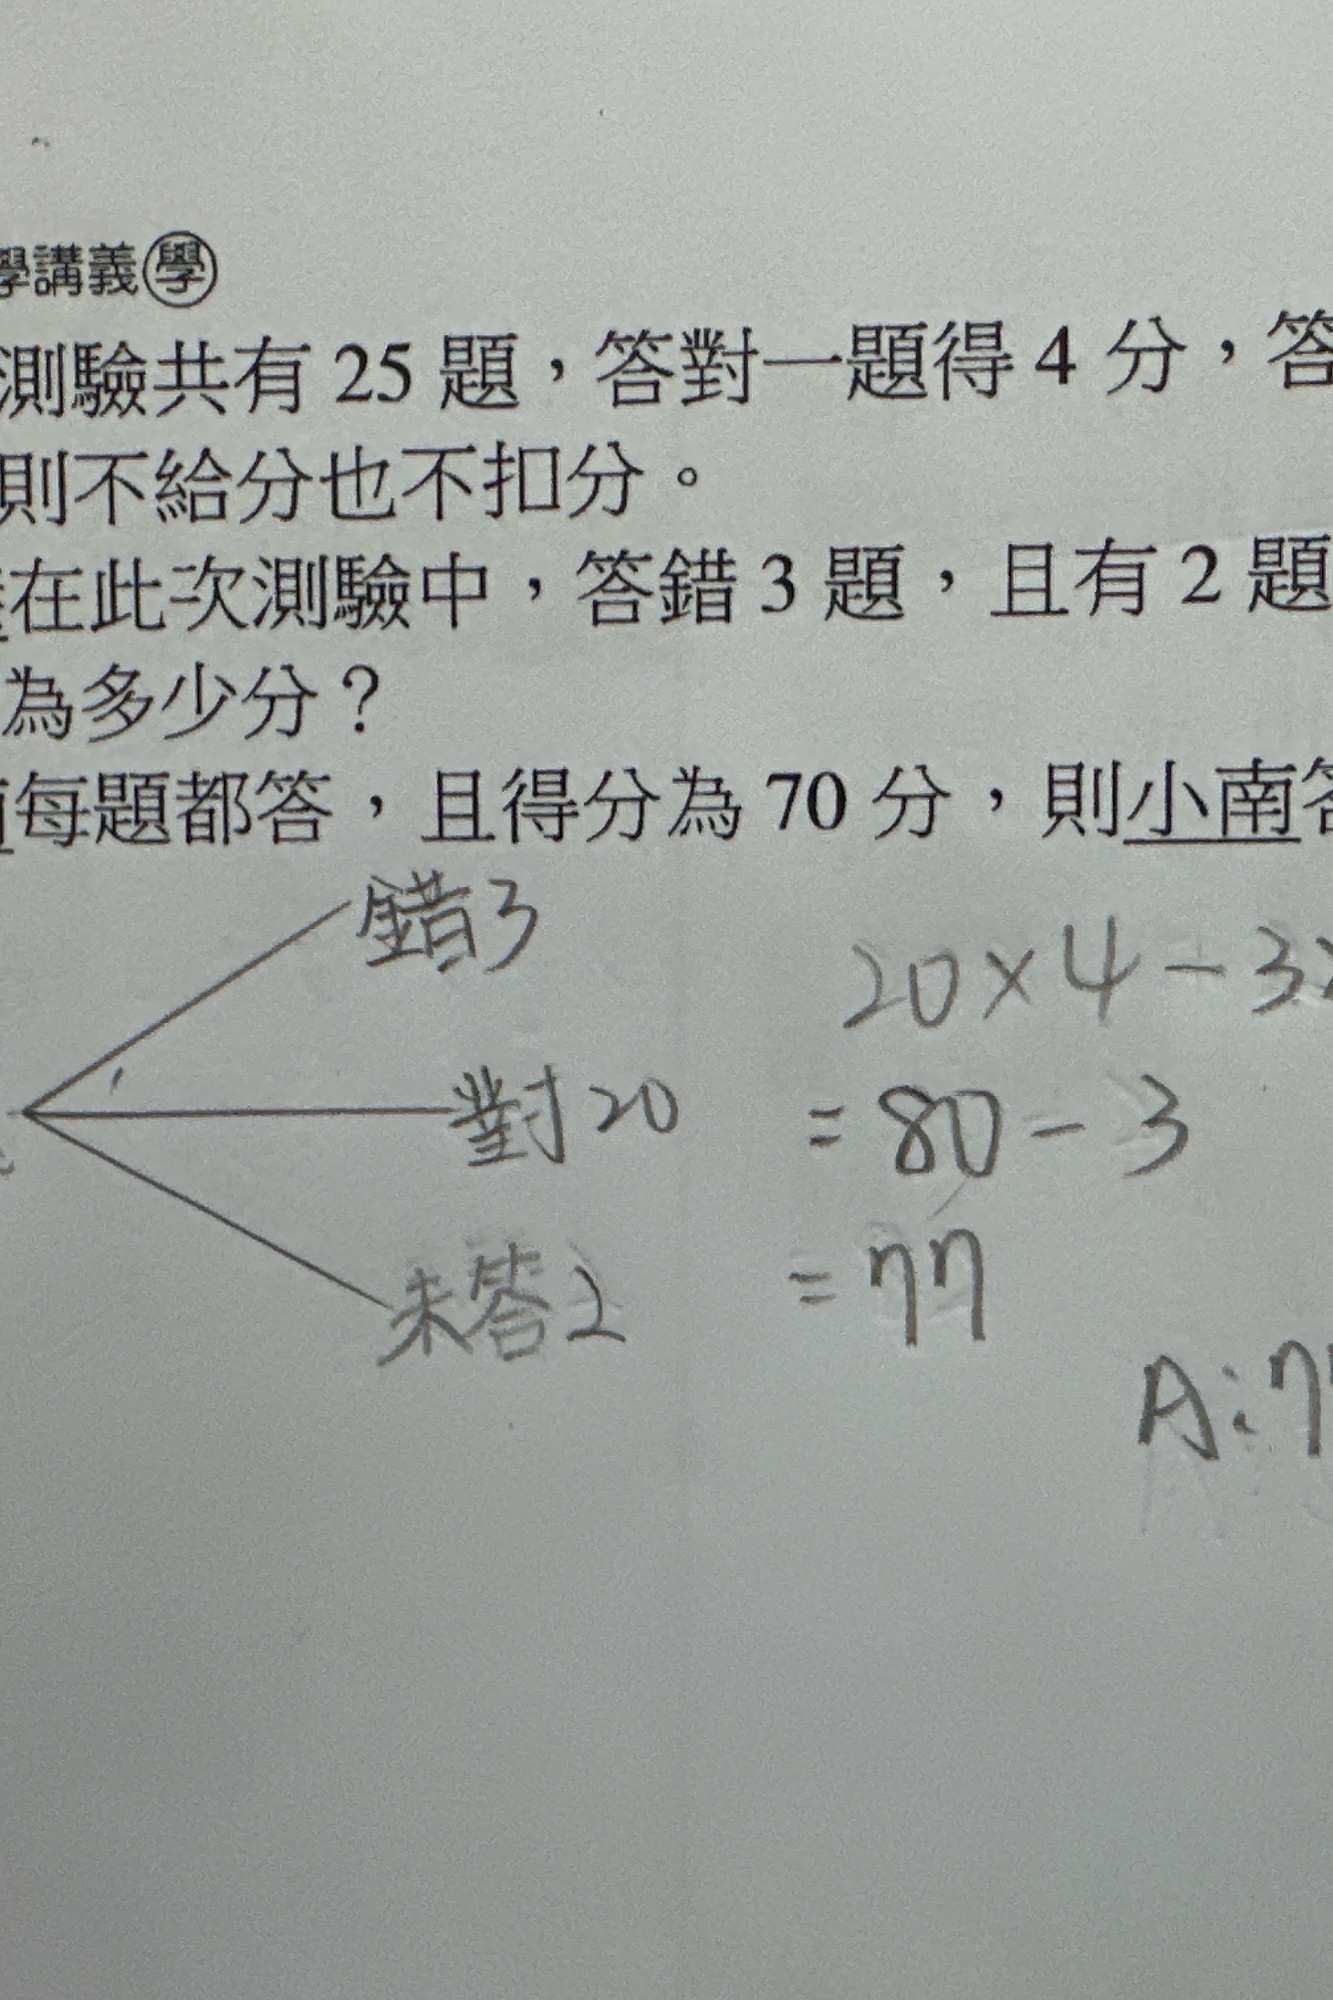 學講義學
測驗共有 25 題，答對一題得 4 分，答
則不給分也不扣分。
在此次測驗中，答錯 3 題，且有 2 題
為多少分？
每題都答，且得分為 70 分，則小南答
錯3
20×4-3×
對20
=80-3
未答2
=77
A:77